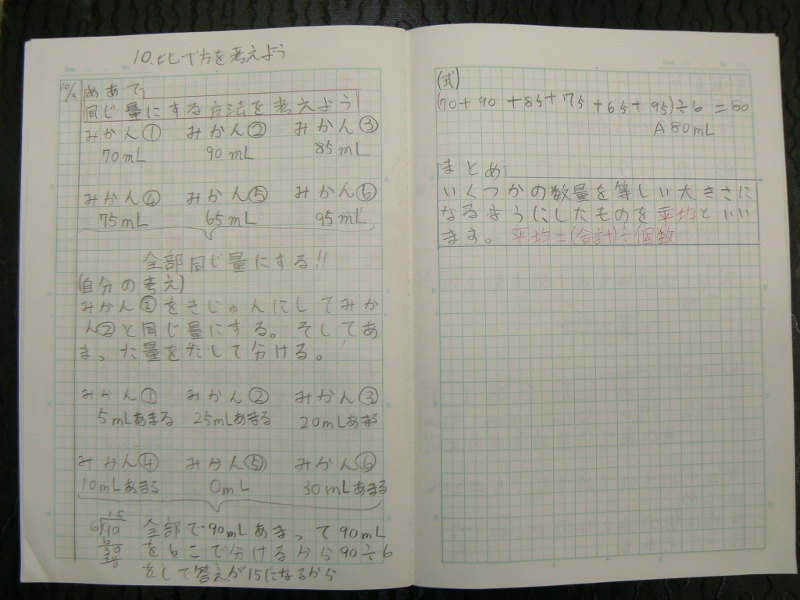 10. 比べ方を考えよう
10/5
めあて
同じ量にする方法を考えよう
みかん① みかん② みかん③
70mL 90mL 85mL
みかん④ みかん⑤ みかん⑥
75mL 65mL 95mL
全部同じ量にする!!
(自分の考え)
みかん をきじゅんにしてみか
ん②と同じ量にする。そしてあ
まった量をたして分ける。
みかん① みかん② みかん③
5mLあまる 25mLあまる 20mLあまる
みかん④ みかん⑤ みかん⑥
10mLあまる 0mL 30mLあまる
15
6)90
6
30
30
0
全部で90mLあまって90mL
を6こで分けるから90÷6
をして答えが15になるから
(式)
(70+90+85+75+65+95)÷6=80
A 80mL
まとめ
いくつかの数量を等しい大きさに
なるようにしたものを平均といい
ます。平均=(合計)÷(個数